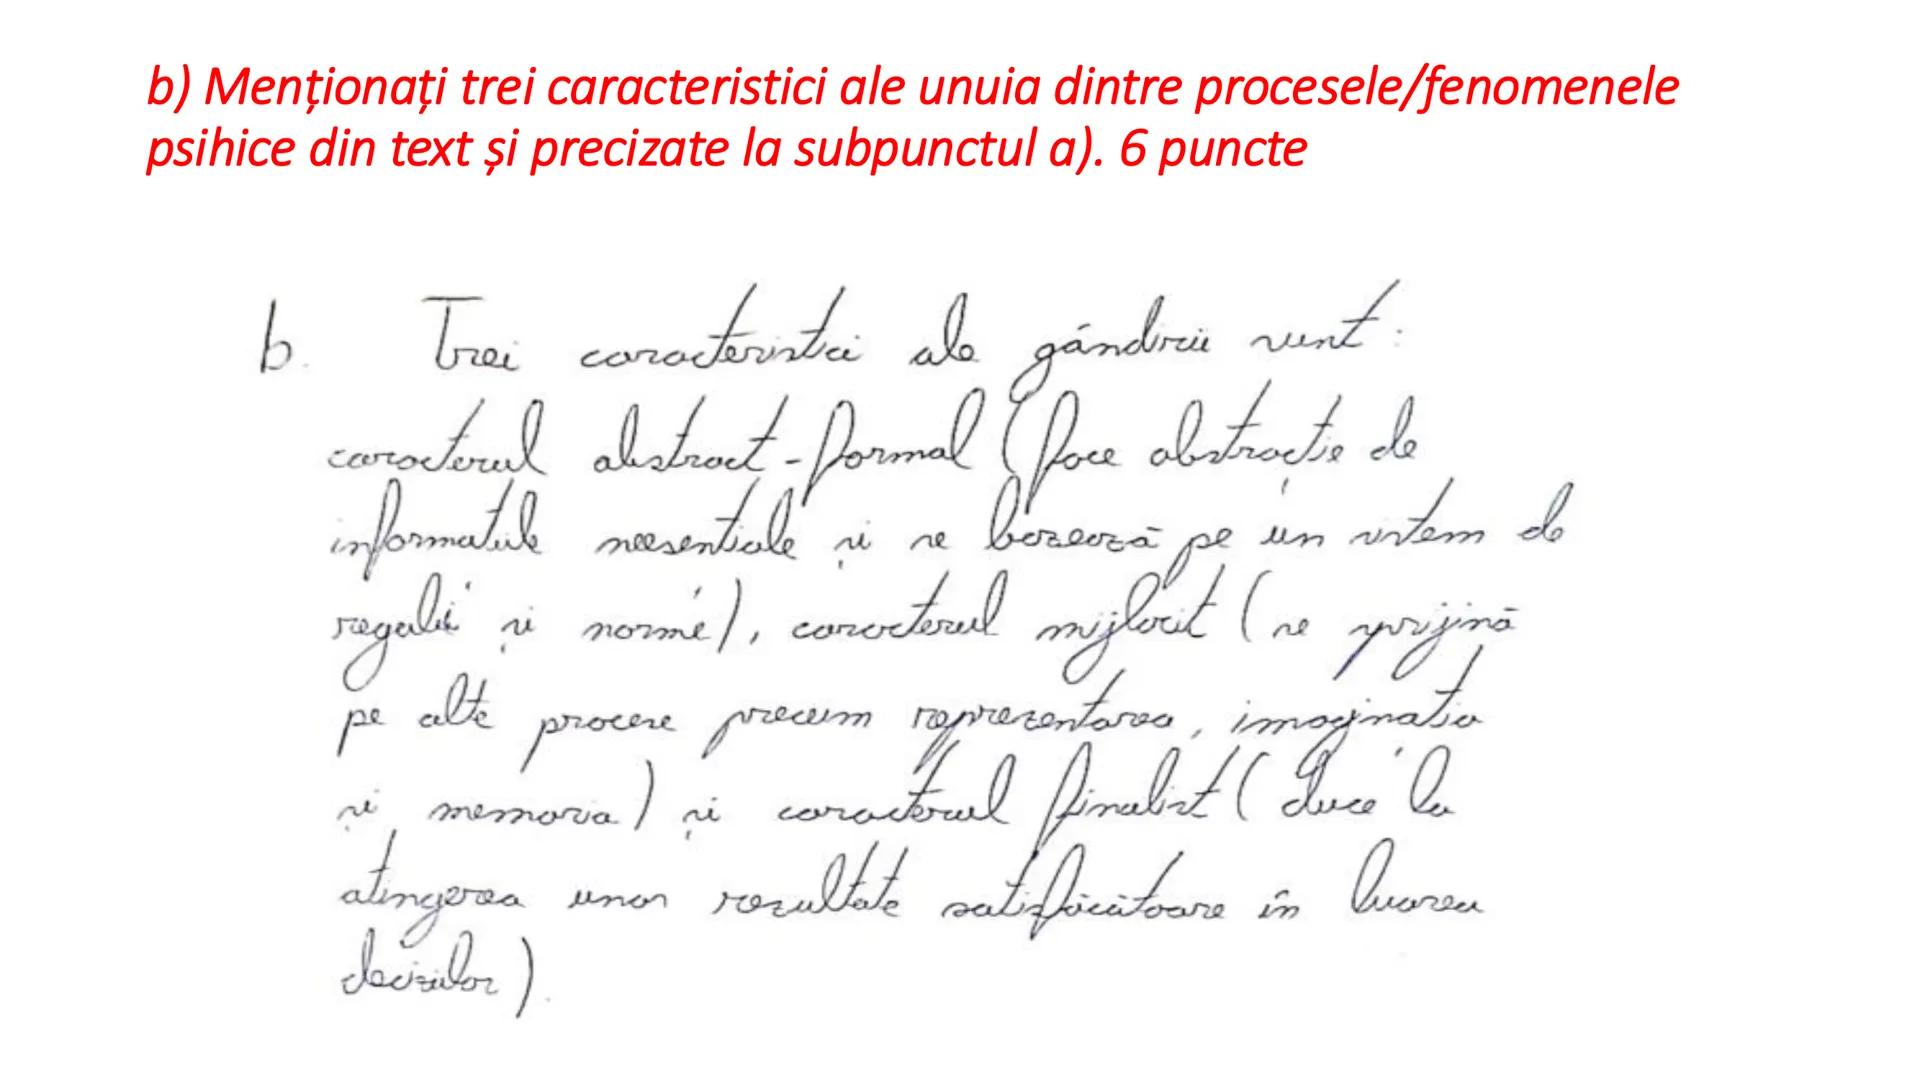 b) Menționați trei caracteristici ale unuia dintre procesele/fenomenele
psihice din text și precizate la subpunctul a). 6 puncte
b. Trei caracteristici ale gândirii sunt:
caracterul abstract-formal (face abstracție de
informațiile neesențiale și se bazează pe un sistem de
reguli și norme), caracterul mijlocit (se sprijină
pe alte procese precum reprezentarea, imaginația
și memoria) și caracterul finalist (duce la
atingerea unor rezultate satisfăcătoare în luarea
deciziilor).